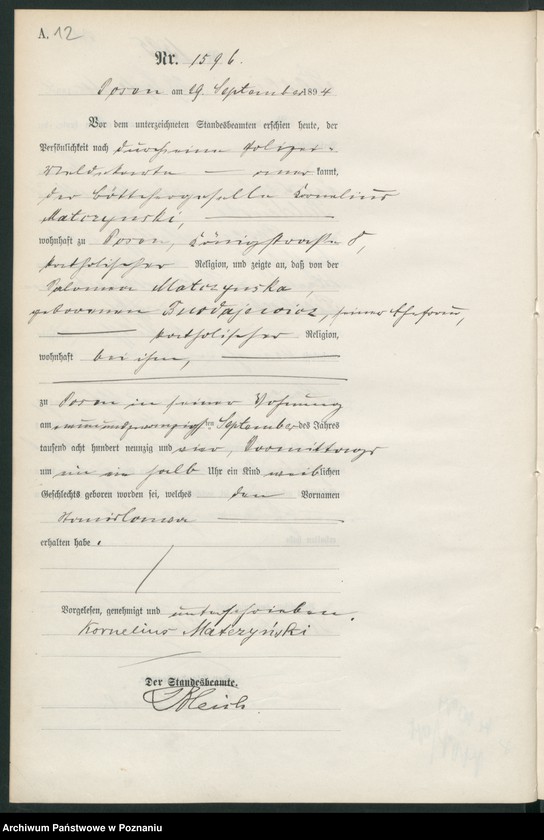 A. 12
Nr. 1596.
Posen am 29. September 1894
Vor dem unterzeichneten Standesbeamten erschien heute, der
Persönlichkeit nach durch eine Polizei-
Meldekarte — anerkannt,
der Böttchergeselle Kornelius
Matczynski,
wohnhaft zu Posen, Königstraße 8,
katholischer Religion, und zeigte an, daß von der
Salomea Matczynska,
geborenen, seiner Ehefrau,
katholischer Religion,
wohnhaft bei ihm,
zu Posen in seiner Wohnung
am ten September des Jahres
tausend acht hundert neunzig und vier, Vormittags
um ein halb Uhr ein Kind weiblichen
Geschlechts geboren worden sei, welches den Vornamen
Stanislawa
erhalten habe.
Vorgelesen, genehmigt und unterschrieben.
Kornelius Matczyński
Der Standesbeamte.
Archiwum Państwowe w Poznaniu